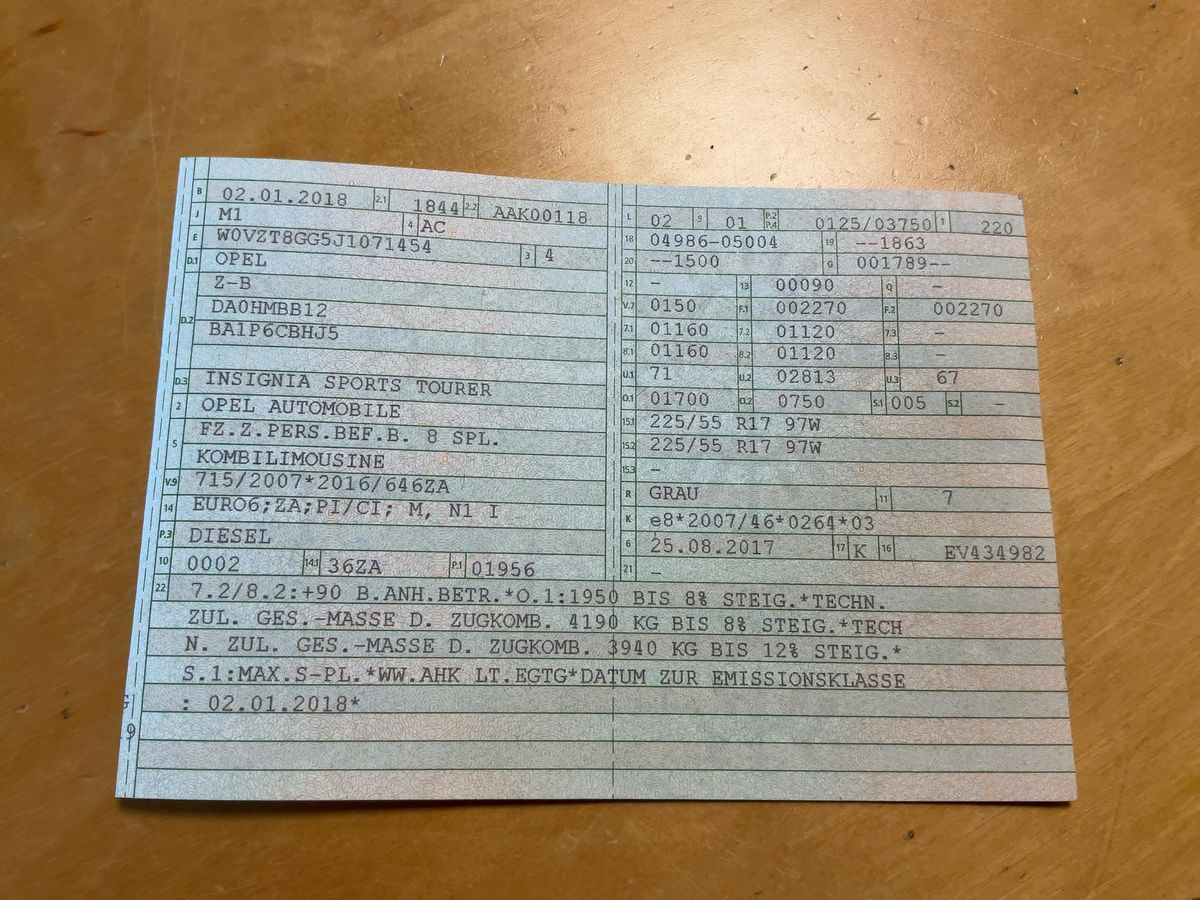 B 02.01.2018 2.1 1844 2.2 AAK00118
J M1 4 AC
E W0VZT8GG5J1071454 3 4
D.1 OPEL
D.2 Z-B
DA0HMBB12
BA1P6CBHJ5
D.3 INSIGNIA SPORTS TOURER
2 OPEL AUTOMOBILE
5 FZ.Z.PERS.BEF.B. 8 SPL.
KOMBILIMOUSINE
V.9 715/2007*2016/646ZA
14 EURO6;ZA;PI/CI; M, N1 I
P.3 DIESEL
10 0002 14.1 36ZA P.1 01956
L 02 9 01 P.2 P.4 0125/03750 T 220
18 04986-05004 19 --1863
20 --1500 G 001789--
12 - 13 00090 Q -
V.7 0150 F.1 002270 F.2 002270
7.1 01160 7.2 01120 7.3 -
8.1 01160 8.2 01120 8.3 -
U.1 71 U.2 02813 U.3 67
O.1 01700 O.2 0750 S.1 005 S.2 -
15.1 225/55 R17 97W
15.2 225/55 R17 97W
15.3 -
R GRAU 11 7
K e8*2007/46*0264*03
6 25.08.2017 17 K 16 EV434982
21 -
22 7.2/8.2:+90 B.ANH.BETR.*O.1:1950 BIS 8% STEIG.*TECHN.
ZUL. GES.-MASSE D. ZUGKOMB. 4190 KG BIS 8% STEIG.*TECH
N. ZUL. GES.-MASSE D. ZUGKOMB. 3940 KG BIS 12% STEIG.*
S.1:MAX.S-PL.*WW.AHK LT.EGTG*DATUM ZUR EMISSIONSKLASSE
: 02.01.2018*
9